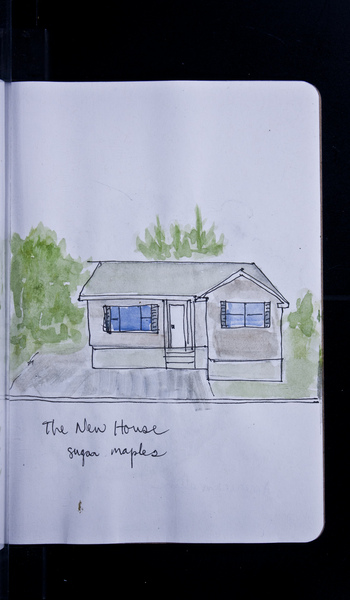 The New House
sugar maples